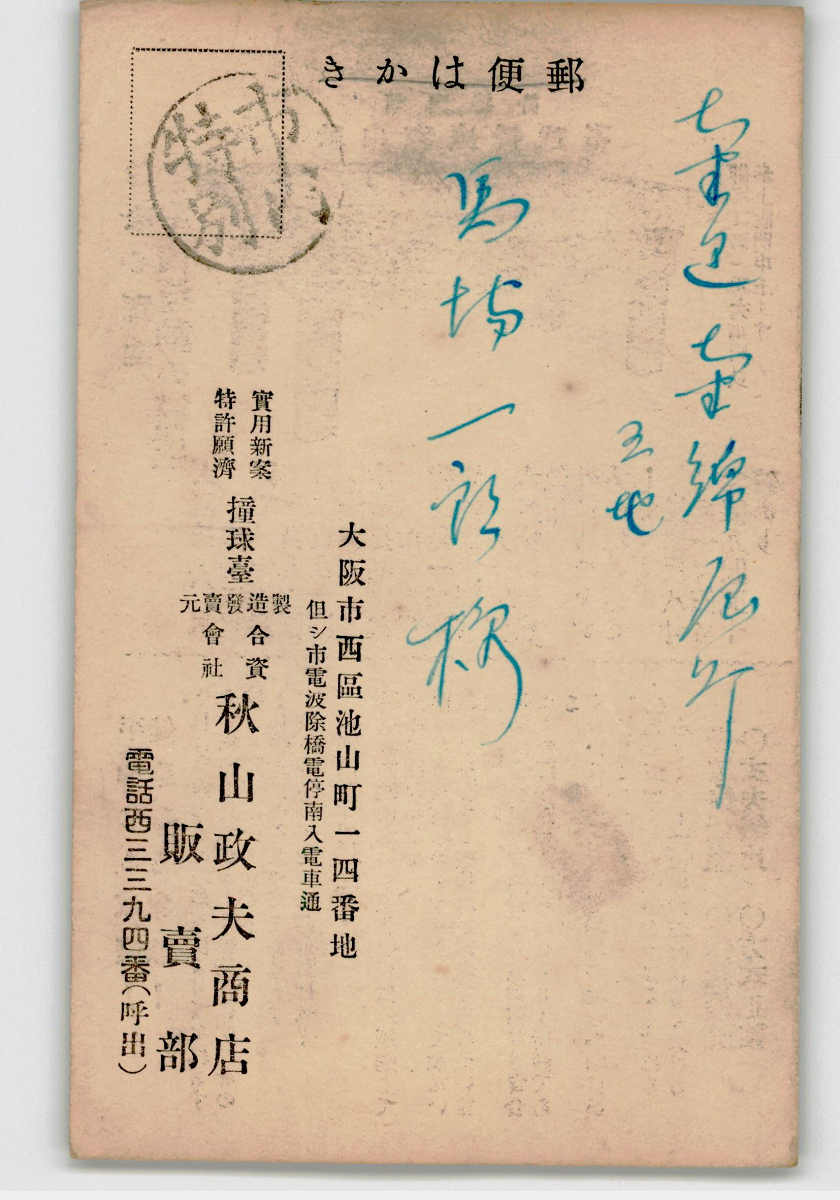 郵便はかき
市内
特別
五地
馬場一郎様
大阪市西區池山町一四番地
但シ市電波除橋電停南入電車通
實用新案
特許願濟
撞球臺
製造發賣元
合資
會社
秋山政夫商店
販賣部
電話西三三九四番(呼出)